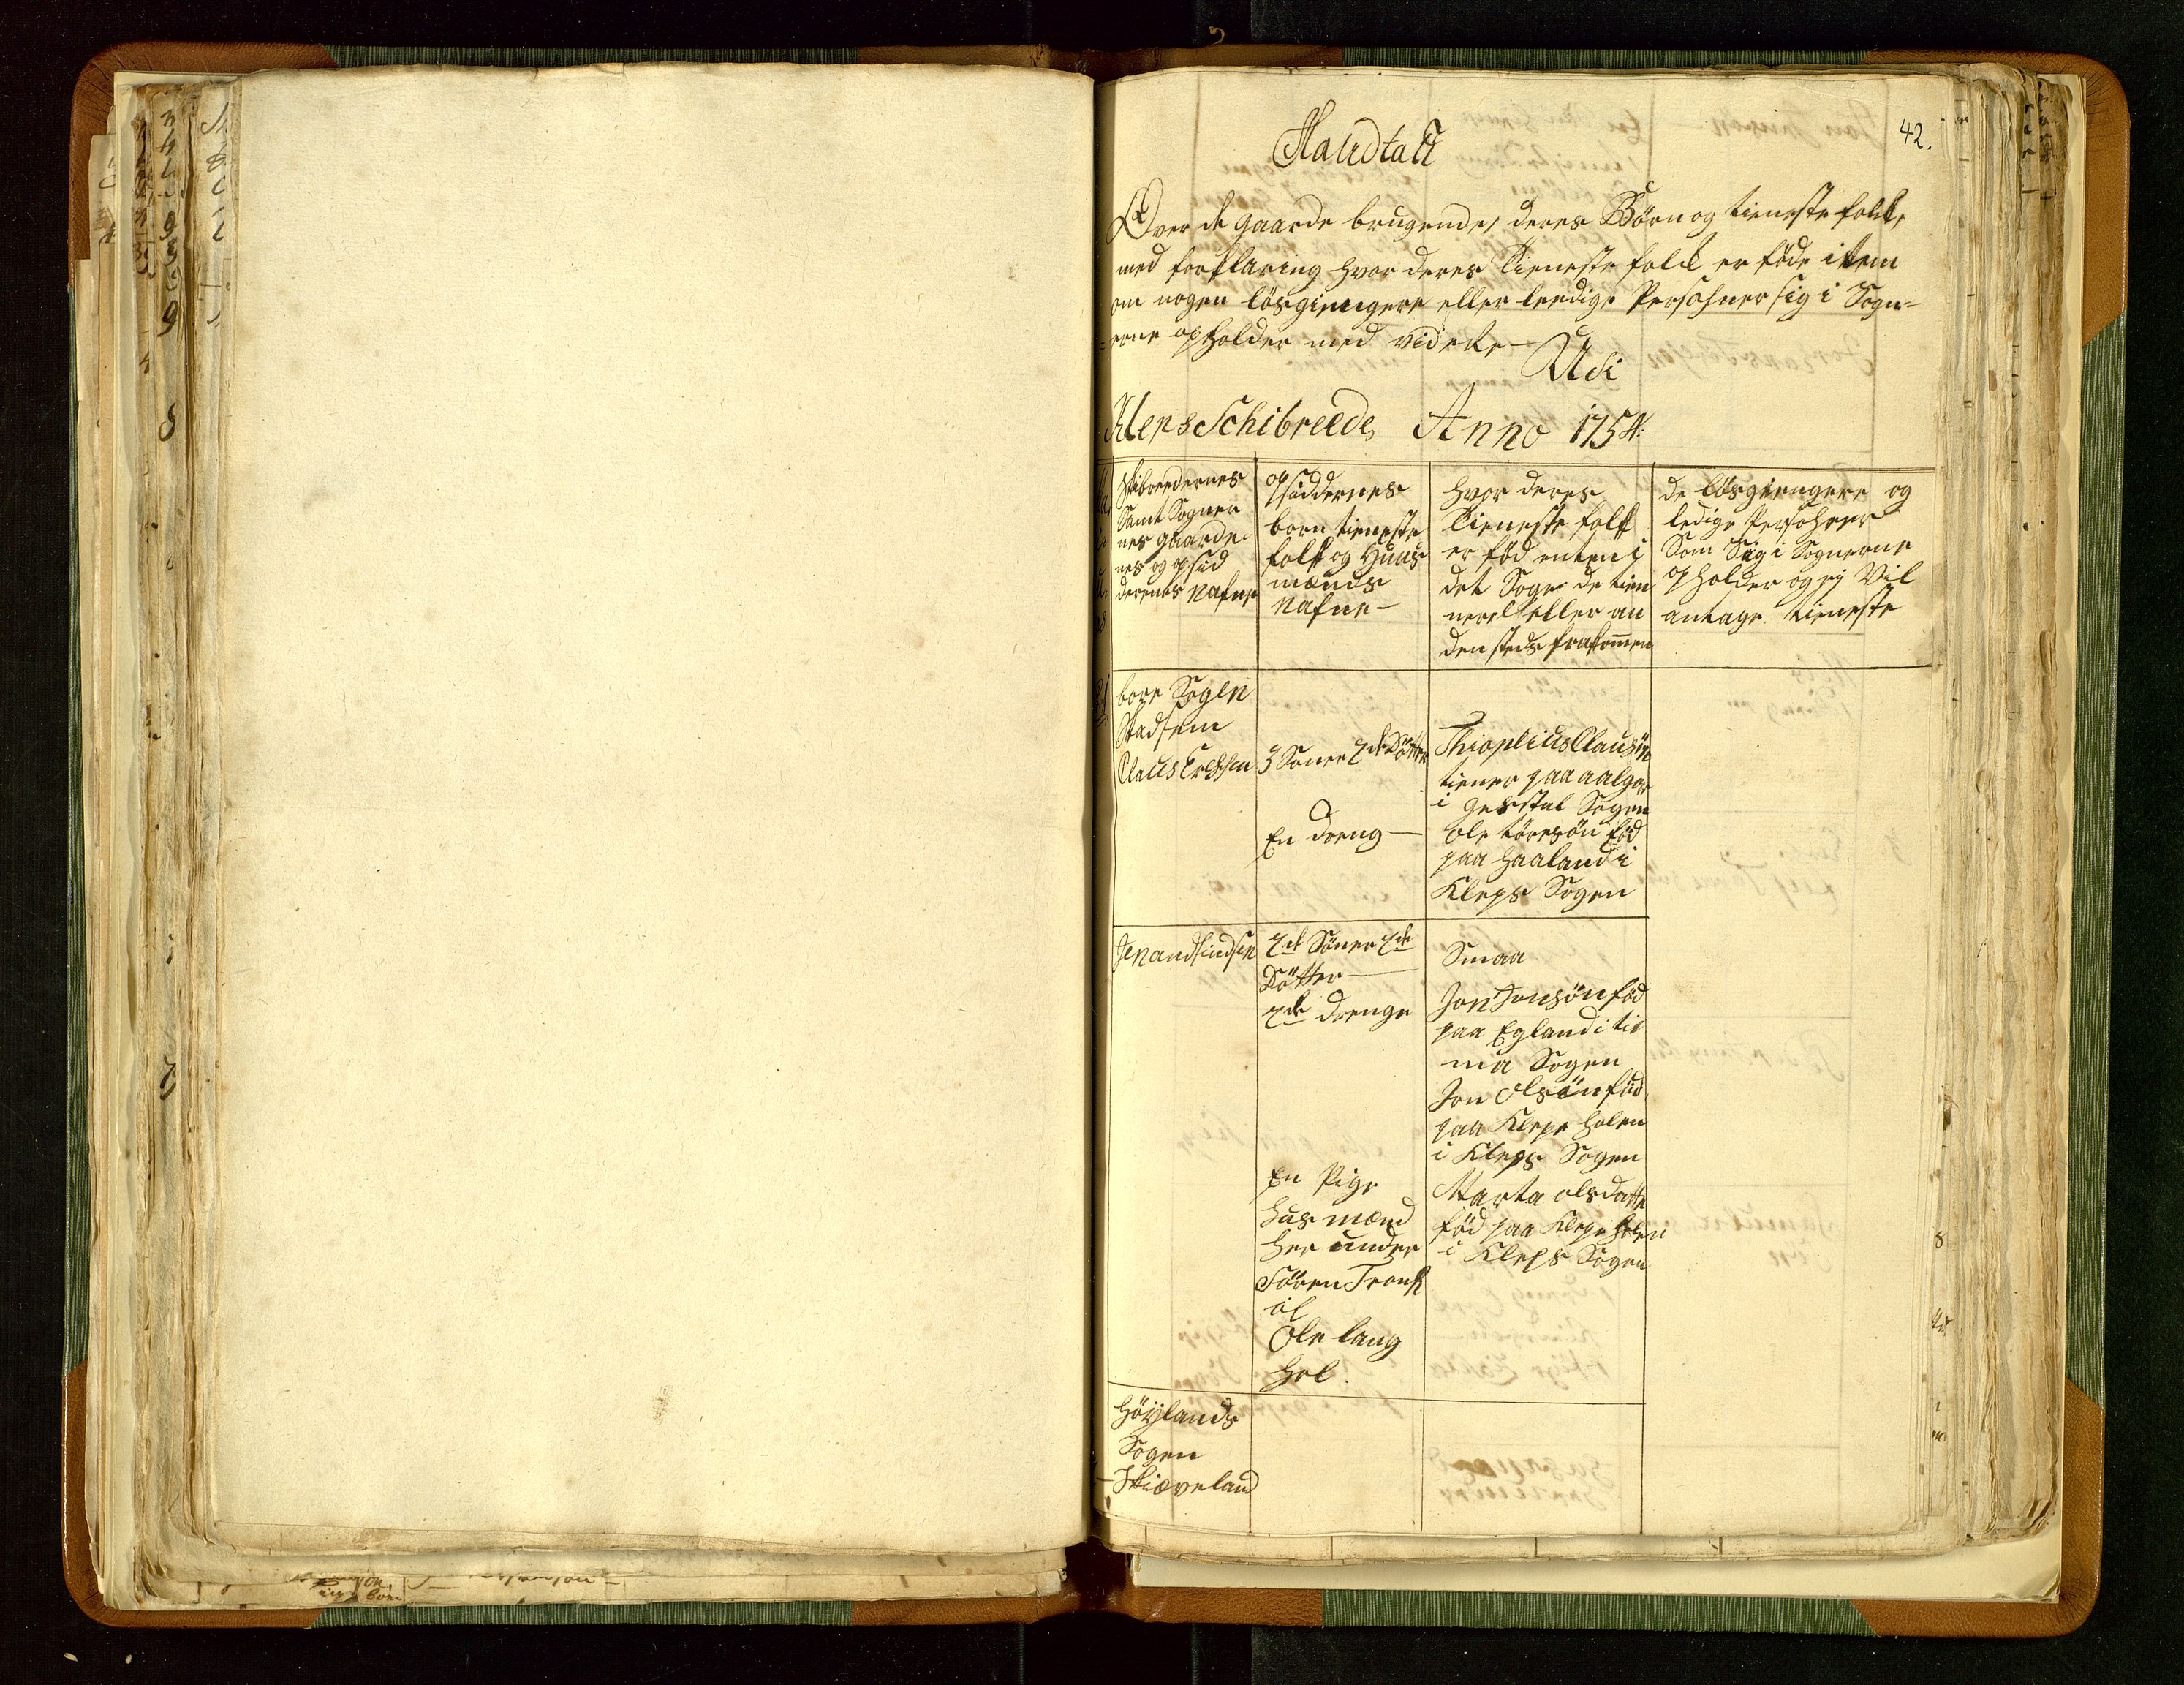 42.
Mandtall
Over de gaarde brugende, deres Börn og tieneste folk,
med forklaring hvor deres Tieneste folk er föde item
om nogen lösgiengere eller leedige Persohner sig i Sogn-
erne opholder med videre
Udi
Klep Schibreede Anno 1754.
Skibreedernes
Samt Sogner
nes gaarde
nes og opsid
dernes Nafne
opsiddernes
born tieneste
folk og Huus
mænds
Nafne
hvor deres
Tieneste folk
er föd enten i
det Sogn de tien
ner eller an
den steds frakommen
de lösgiengere og
ledige Persohner
Som Sig i Sognerne
opholder og ej Vil
antage tieneste
bore Sogen
Stadsem
Claus
3 Sönner 2de Döttre
En dreng
Clausön
tiener paa aalgor
i giesstal Sogen
ole toresön föd
paa Haaland i
Kleps Sogen
2de Söner 2de
Döttre
2de drenge
En Pige
Hus mænd
her under
Sören
Ole lang
hol
Smaa
Jon Jonsön föd
paa Egland i tie
ma Sogen
Jon Olsön föd
paa Klepe holen
i Kleps Sogen
Marta olsdatter
föd paa Klepe holen
i Kleps Sogen
Höÿlands
Sogen
Skiæveland